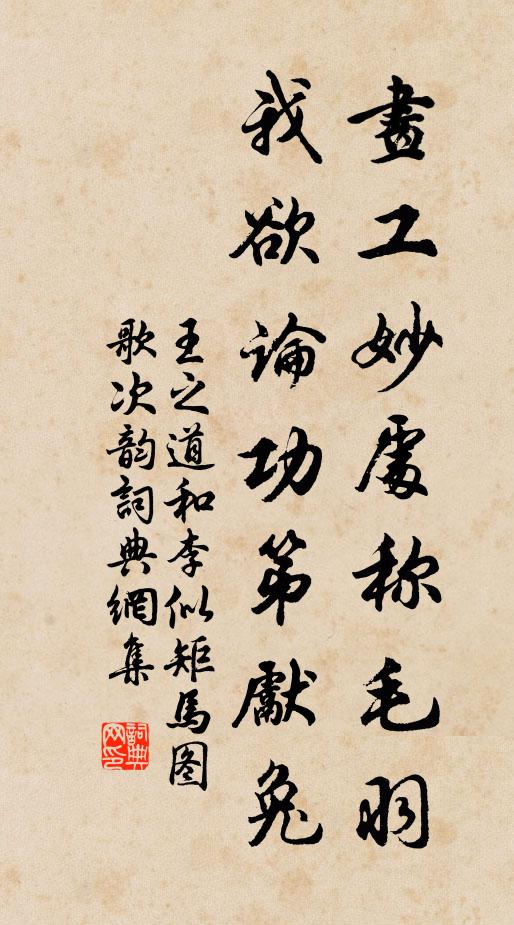 畫工妙處称毛羽
我欲論功第獻兔
王之道和李似矩馬图
歌次韵詞典網集
詞典
网印